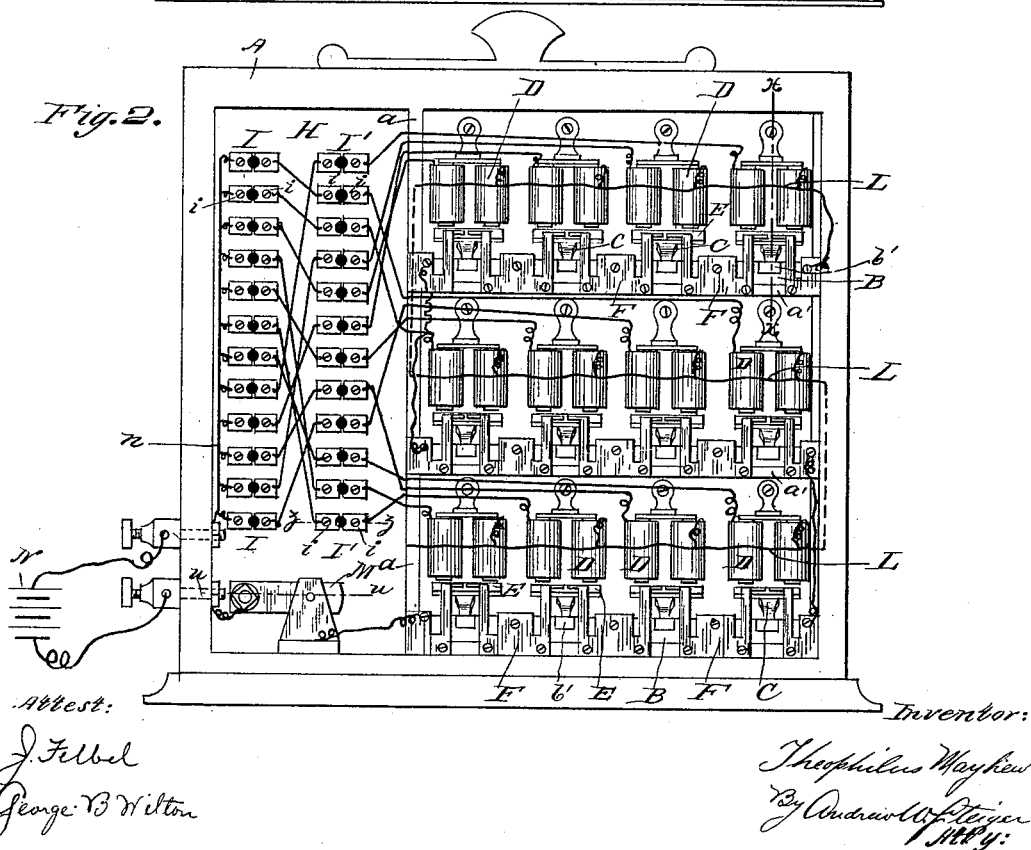 Fig. 2.
A
D D
H
a
I I'
i i i i
L
E
C C
b'
B
F F
a'
x
x
D
L
n
a'
I I'
z z
i i
N
M
a
u u
E
D D D
L
F b' E B F C
Attest:
J. Felbel
George B Wilton
Inventor:
Theophilus Mayhew
By Andrew W. Steiger
Att'y: